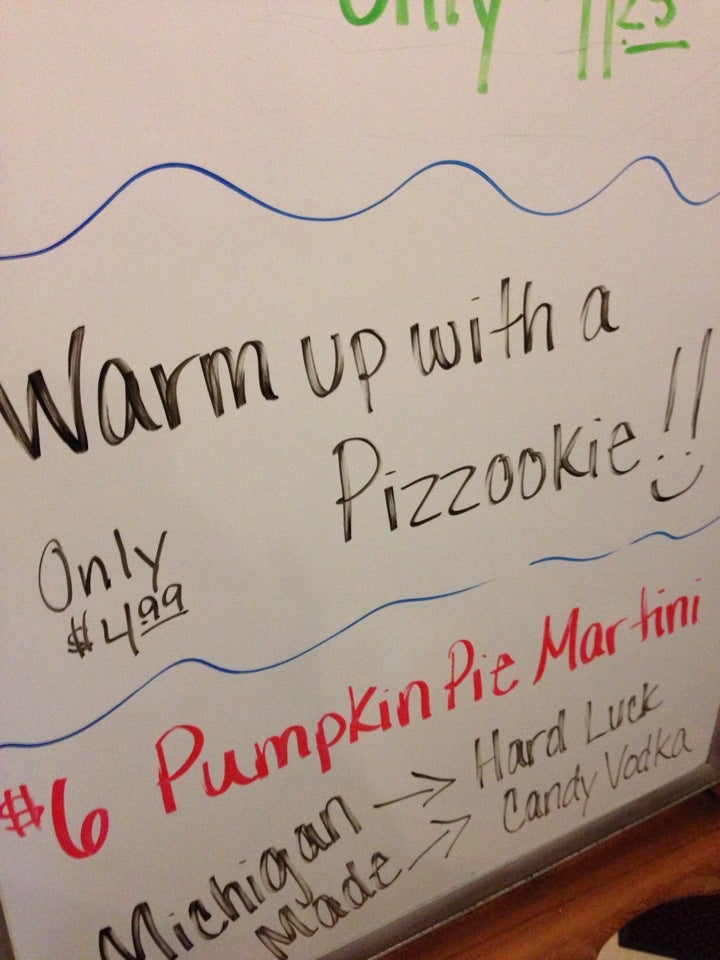 Only
Warm up with a
Pizzookie!!
Only
$4.99
$6 Pumpkin Pie Martini
Michigan → Hard Luck
Made → Candy Vodka